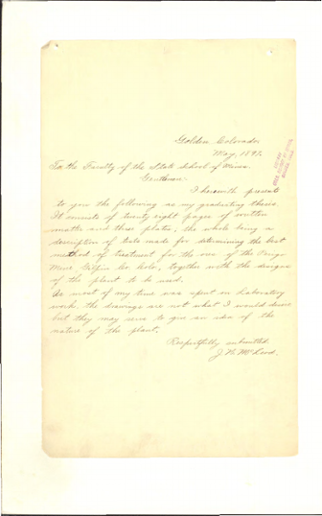 Golden, Colorado
May, 1893.
To the Faculty of the State School of Mines
Gentlemen:
I herewith present
to you the following as my graduating thesis.
It consists of twenty eight pages of written
matter and three plates, the whole being a
description of tests made for determining the best
method of treatment for the ores of the
Mine Gilpin Co. Colo., together with the designs
of the plant to be used.
As most of my time was spent on Laboratory
work, the drawings are not what I would desire
but they may serve to give an idea of the
nature of the plant.
Respectfully submitted.
J. W. McLeod.